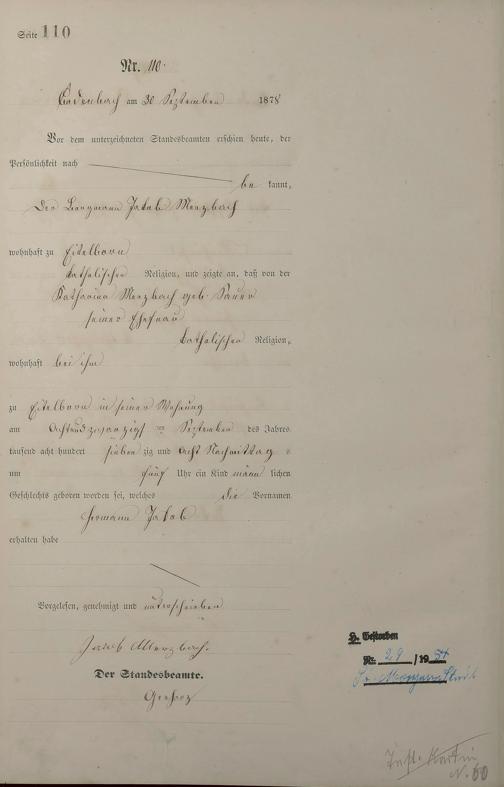 Seite 110
Nr. 110.
Cadenbach am 30 September 1878
Vor dem unterzeichneten Standesbeamten erschien heute, der
Persönlichkeit nach
be kannt,
Der Bergmann Jakob Merzbach
wohnhaft zu Eitelborn
katholischer Religion, und zeigte an, daß von der
Katharina Merzbach geb. Sauer
seiner Ehefrau
katholischer Religion,
wohnhaft bei ihm
zu Eitelborn in seiner Wohnung
am Achtundzwanzigsten September des Jahres
tausend acht hundert sieben zig und acht Nachmittag s
um fünf Uhr ein Kind männ lichen
Geschlechts geboren worden sei, welches die Vornamen
Hermann Jakob
erhalten habe
Vorgelesen, genehmigt und unterschrieben
Jakob Merzbach.
Der Standesbeamte.
H. Gestorben
Nr. 29 /19 54
N. 60